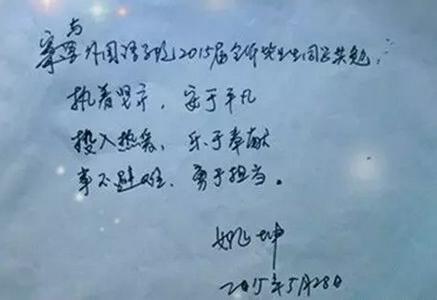 与外国语学院2015届全体毕业生同学共勉：
执着坚守，安于平凡
投入热爱、乐于奉献
事不避难、勇于担当。
姚坤
2015年5月28日